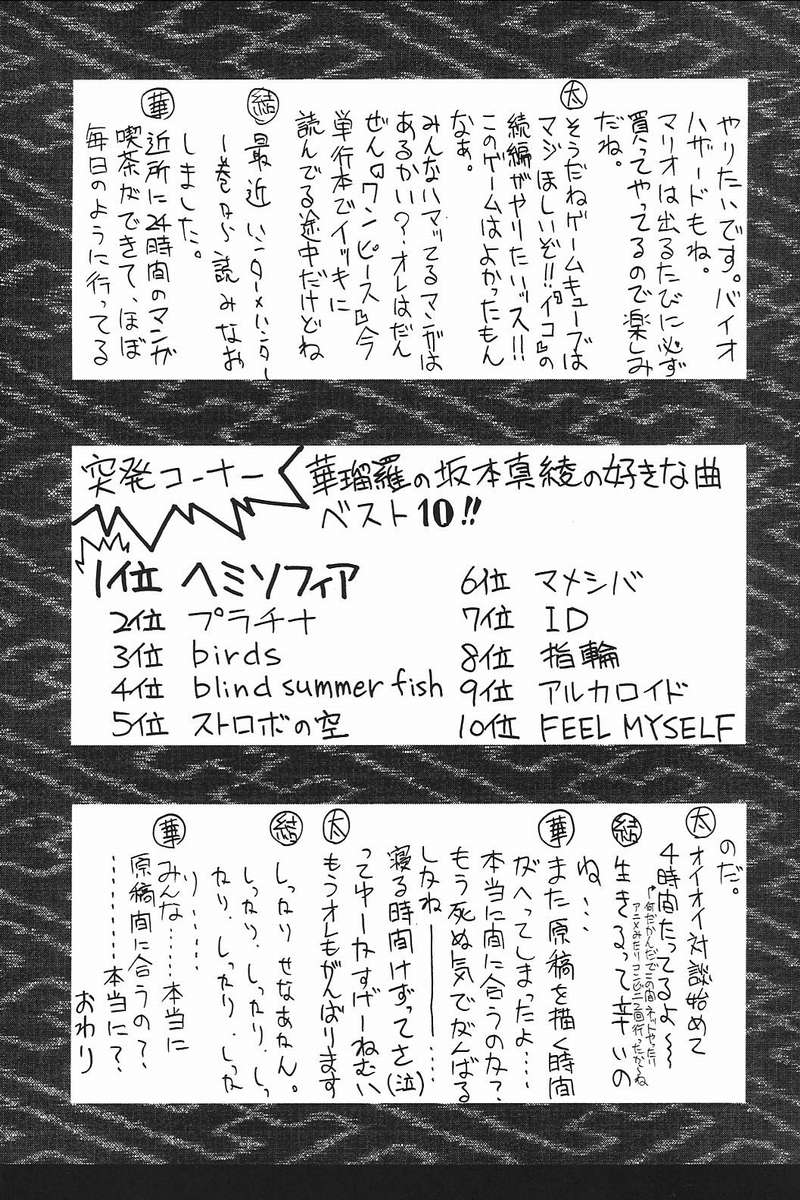 やりたいです。バイオ
ハザードもね。
マリオは出るたびに必ず
買ってやってるので楽しみ
だね。
太
そうだねゲームキューブでは
マジほしいぞ!!『イコ』の
続編がやりたいッス!!
このゲームはよかったもん
なぁ。
みんなハマッてるマンガは
あるかい?オレはだん
ぜん『ワンピース』今
単行本でイッキに
読んでる途中だけどね
結
最近ハンターハンター
1巻から読みなお
しました。
華
近所に24時間のマンガ
喫茶ができて、ほぼ
毎日のように行ってる
突発コーナー
華瑠羅の坂本真綾の好きな曲
ベスト10!!
1位 ヘミソフィア
2位 プラチナ
3位 birds
4位 blind summer fish
5位 ストロボの空
6位 マメシバ
7位 ID
8位 指輪
9位 アルカロイド
10位 FEEL MYSELF
のだ。
太
オイオイ対談始めて
4時間たってるよ〜
何だかんだでこの間ネットやったり
アニメみたりコンビニ2回行ったからね
結
生きるって辛いの
ね…
華
また原稿を描く時間
がへってしまったよ…
本当に間に合うのか?
もう死ぬ気でがんばる
しかねーーー…
寝る時間けずってさ(泣)
ってゆーかすげーねむい
太
もうオレもがんばります
結
しったりせなあかん。
しったり、しったり、しっ
たり、しったり、しった
り……
華
みんな……本当に
原稿間に合うの?
………本当に?
おわり